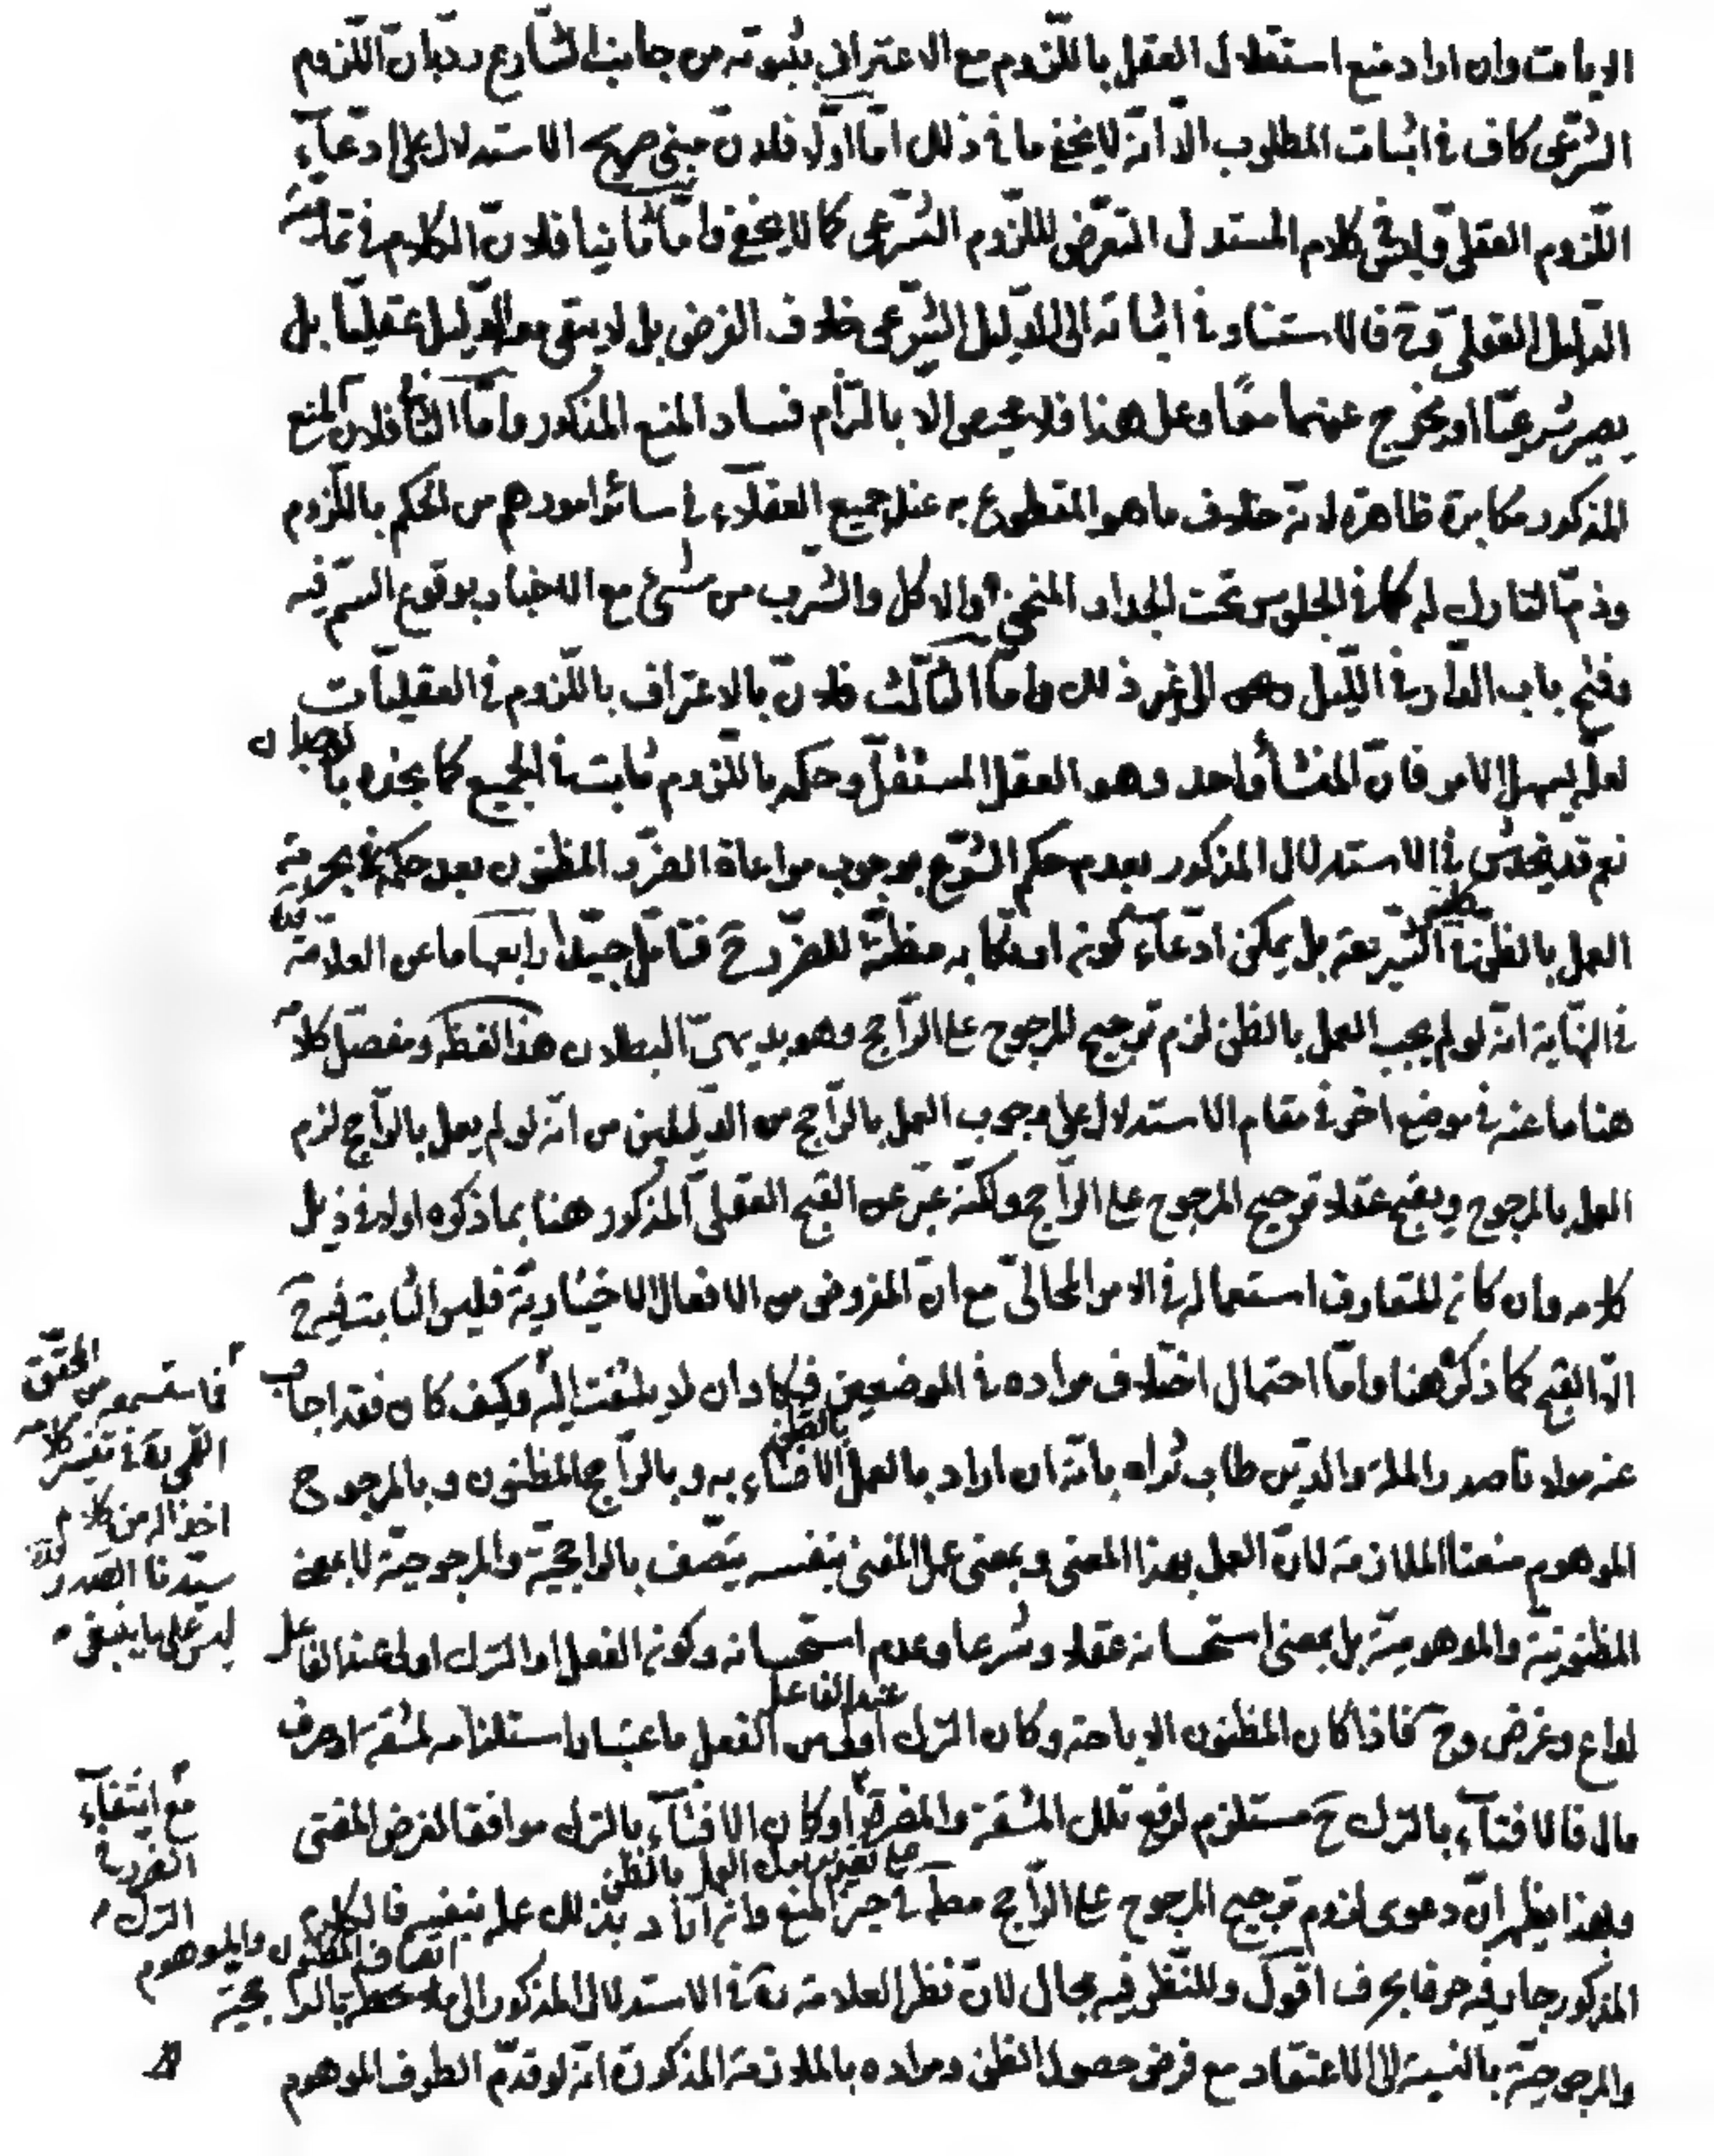 الديانت وان اراد منع استقلال العقل باللّزوم مع الاعتراف بثبوته من جانب الشّارع ردّبانّ اللّزوم
الشّرعى كاف فى اثبات المطلوب الّا انّه لا يخفى ما فى ذلك امّا اوّلا فلانّ مبنى صريح الاستدلال على ادّعآء
اللّزوم العقلىّ وليس فى كلام المستدل التعرّض للّزوم الشّرعى كما لا يخفى وامّا ثانيا فلانّ الكلام فى تماميّة
الدّليل العقلىّ وح فالاستناد فى اثباته الى الدّليل الشّرعى خلاف الفرض بل لا يبقى معه الدّليل عقليّا بل
يصير شرعيّا او يخرج عنهما معًا وعلى هذا فلا محيص الّا بالتزام فساد المنع المذكور وامّا الثانى فلانّ المنع
المذكور مكابرة ظاهرة لانّه خلاف ما هو المقطوع به عند جميع العقلآء فى سائر امورهم من الحكم باللّزوم
وذمّ التارك له كما فى الجلوس تحت الجدار المنحنى والاكل والشّرب من شئ مع الاخبار بوقوع السّم فيه
وفتح باب الدّار فى اللّيل الى غير ذلك وامّا الثّالث فلانّ بالاعتراف باللّزوم فى العقليّات
لعلّه يسهل الامر فانّ المنشأ واحد وهو العقل المستقلّ وحكمه باللّزوم ثابت فى الجميع كما نجده بالوجدان
نعم قد يخدش فى الاستدلال المذكور بعدم حكم الشّرع بوجوب مراعاة الضّرر المظنون بعد حكمه بحرمة
العمل بالظن فى الشّريعة بل يمكن ادّعآء كونه ارتكابه مظنّة للضّرر ح فتامّل جيّدا رابعها ما عن العلّامة
فى النّهاية انّه لو لم يجب العمل بالظن لزم ترجيح المرجوح على الرّاجح وهو بديهىّ البطلان هذا لفظه ومفصّل كلامه
هنا ما عنه فى موضع اخر فى مقام الاستدلال على وجوب العمل بالرّاجح من الدّليلين من انّه لو لم يعمل بالرّاجح لزم
العمل بالمرجوح ويقبح عقلا ترجيح المرجوح على الرّاجح ولكنّه عبّر عن القبح العقلىّ المذكور هنا بما ذكره اولا فى ذيل
كلامه وان كان المتعارف استعماله فى الامر المحالىّ مع انّ المفروض من الافعال الاختياريّة فليس الثابت فيه ح
الّا القبح كما ذكره هنا وامّا احتمال اختلاف مراده فى الموضعين فيكاد ان لا يلتفت اليه وكيف كان فقد اجاب
عنه مولانا صدر الملّة والدّين طاب ثراه بانّه ان اراد بالعمل بالظّن الافتآء به وبالرّاجح المظنون وبالمرجوح
الموهوم منعنا الملازمة لانّ العمل بهذا المعنى وبمعنى عمل المفتى بنفسه يتّصف بالراجحيّة والمرجوحيّة لا بمعنى
المظنونيّة والموهوميّة بل بمعنى استحسانه عقلا وشرعا وعدم استحسانه وكونه الفعل او الترك اولى عند الفاعل
لداع وغرض وح فاذا كان المظنون الاباحة وكان الترك اولى عند الفاعل من الفعل باعتبار استلزامه لمشقّة او صرف
مال فالافتآء بالترك ح مستلزم لرفع تلك المشقّة والمضرّة او كان الافتآء بالترك موافقا لغرض المفتى
وبهذا يظهر انّ دعوى لزوم ترجيح المرجوح على الرّاجح مط مع تقدير عدم العمل بالظن فى حيّز المنع وانه اراد بذلك عمله بنفسه فالكلام
المذكور جار فيه حرفا بحرف اقول وللنّظر فيه مجال لانّ نظر العلّامة ره فى الاستدلال المذكور الى اتّصاف المظنون والموهوم بالراجحيّة
والمرجوحيّة بالنّسبة الى الاعتقاد مع فرض حصول الظن ومراده بالملازمة المذكورة انّه لو قدّم الطرف الموهوم
فاستسمعه من المحقّق
القمى ره فى تفسير كلامه
اخذا له من كلام
سيّدنا الصّدر
ليس على ما ينبغى
مع انتفآء
الضرر فى
الترك